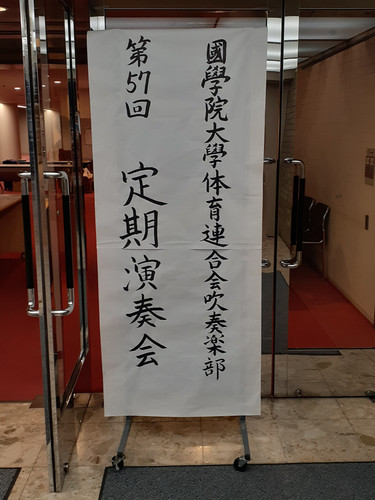 國學院大學体育連合会吹奏楽部
第57回 定期演奏会